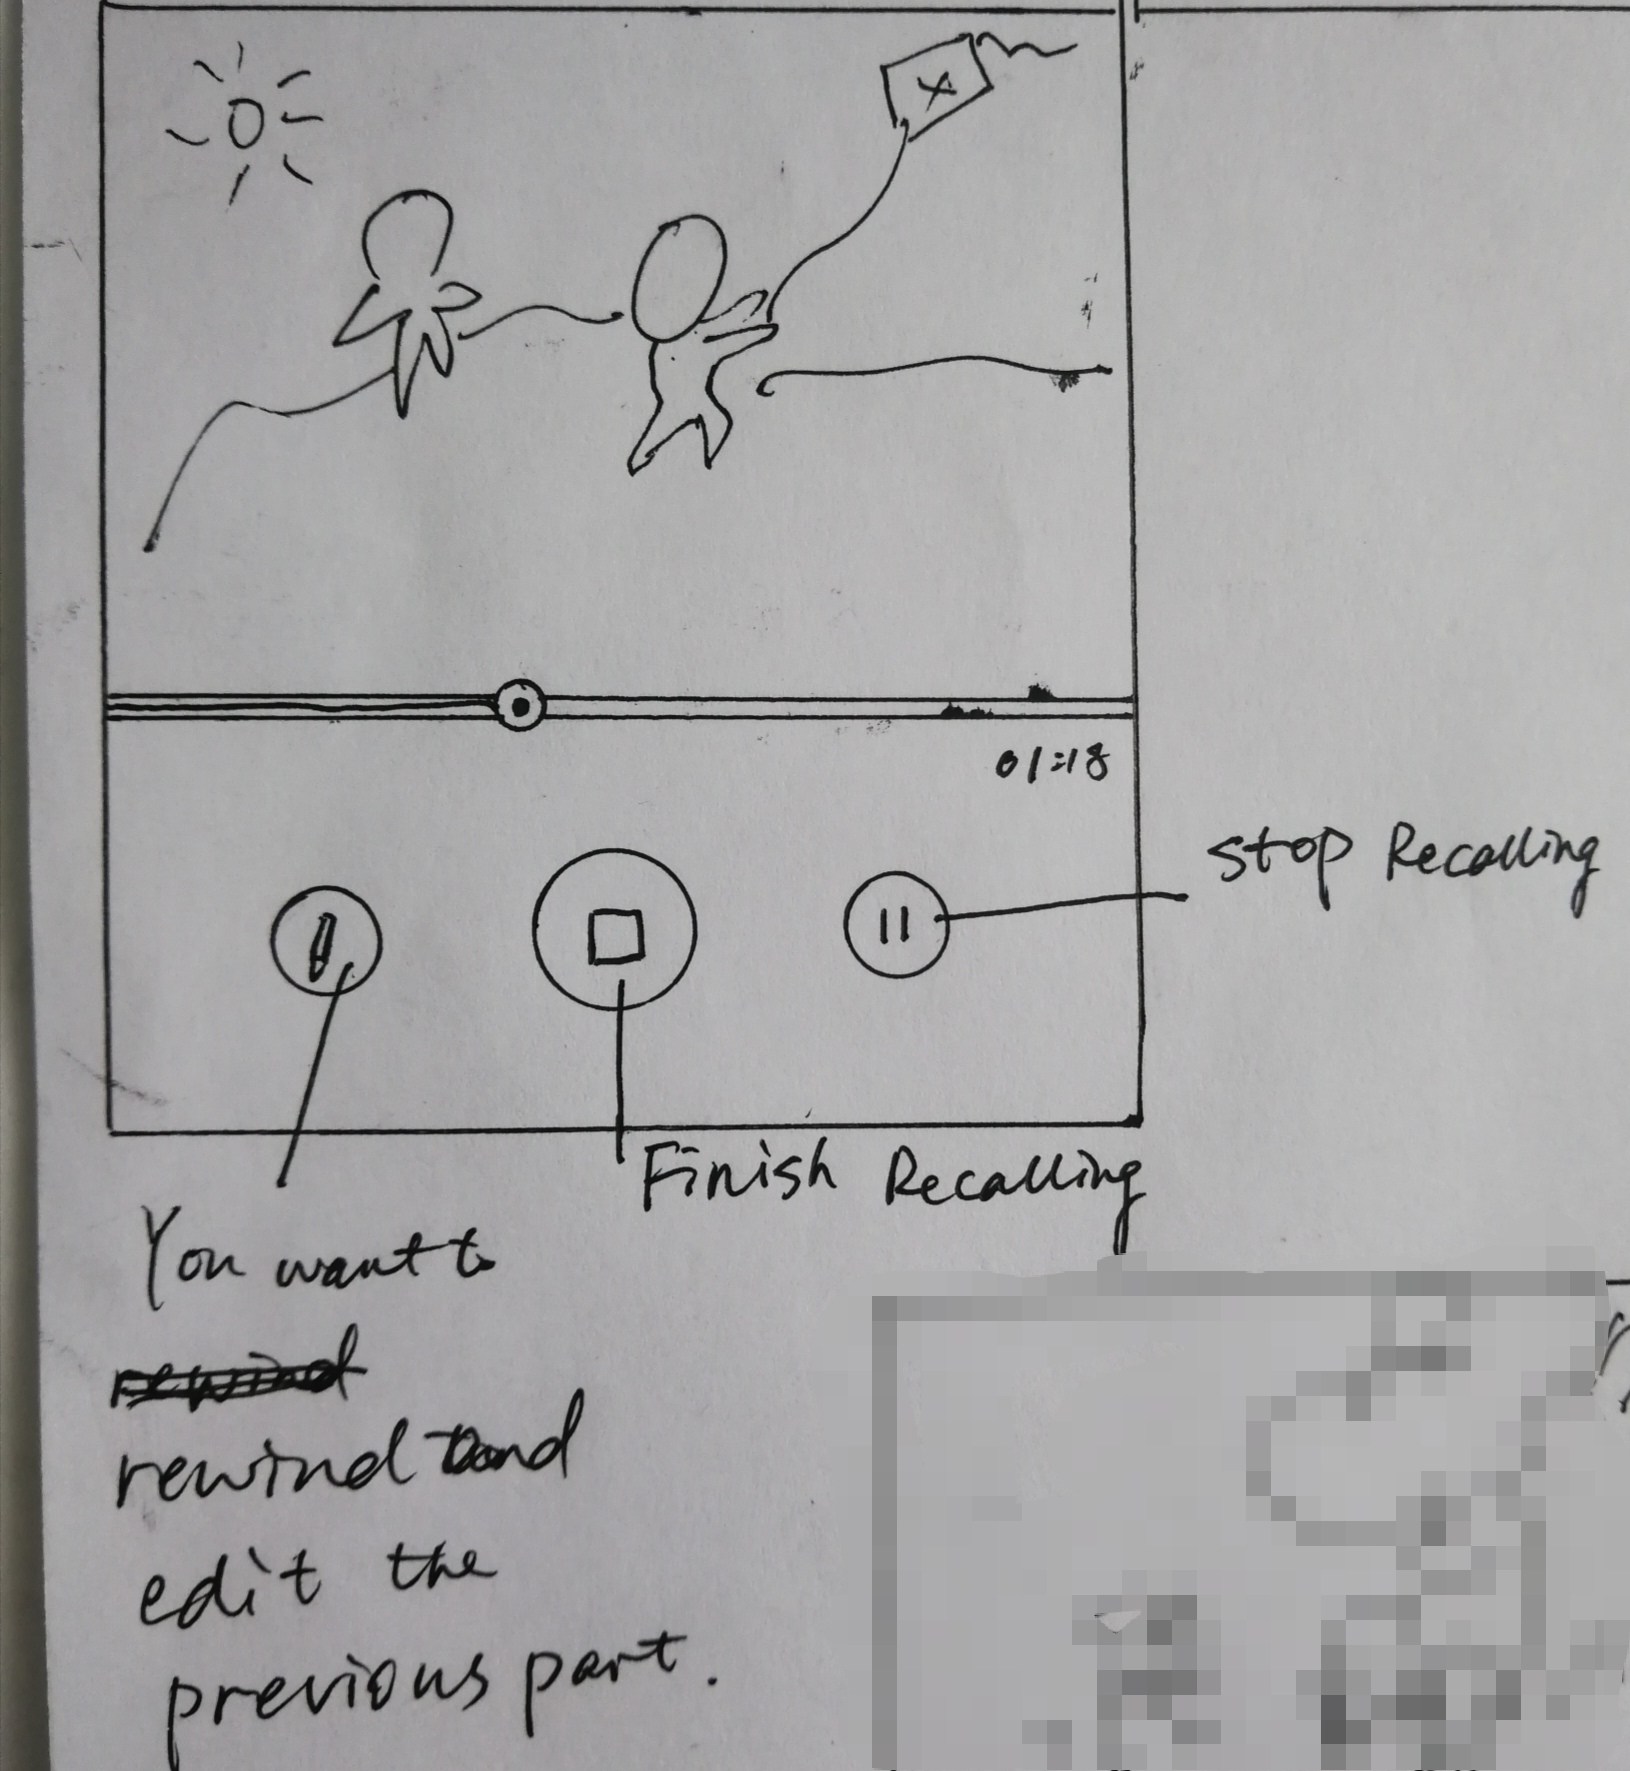 01:18
Stop Recalling
Finish Recalling
You want to
rewind
rewind and
edit the
previous part.